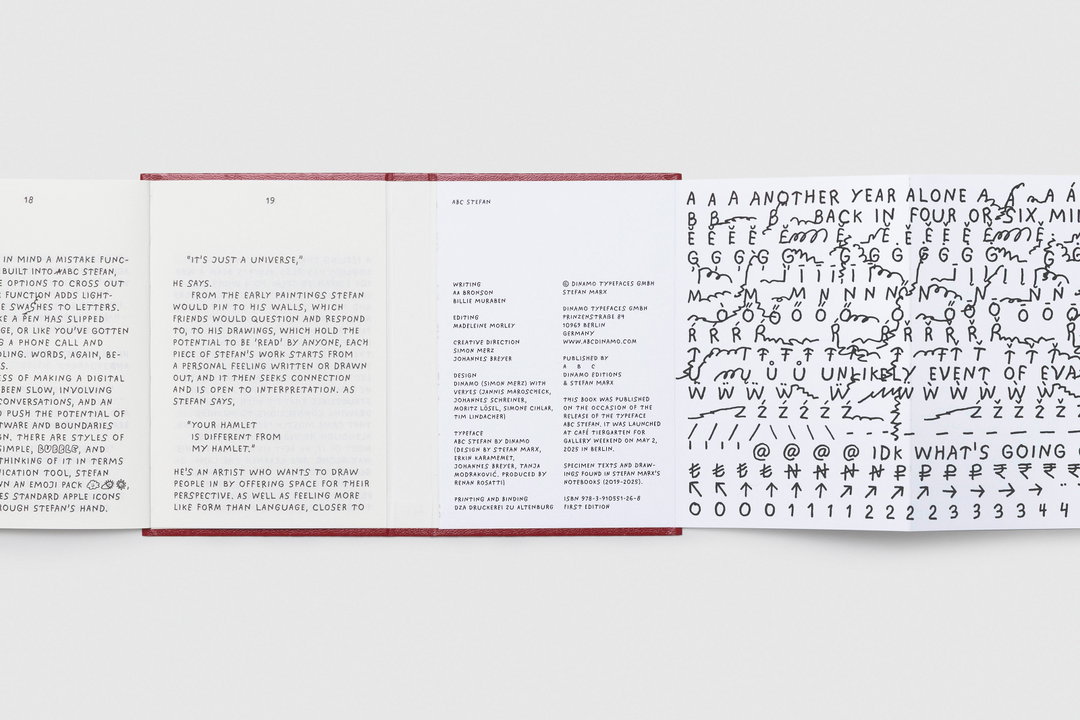 18
IN MIND A MISTAKE FUNC-
BUILT INTO ABC STEFAN,
OPTIONS TO CROSS OUT
FUNCTION ADDS LIGHT-
SWASHES TO LETTERS.
A PEN HAS SLIPPED
OR LIKE YOU'VE GOTTEN
A PHONE CALL AND
WORDS, AGAIN, BE-
OF MAKING A DIGITAL
BEEN SLOW, INVOLVING
CONVERSATIONS, AND AN
PUSH THE POTENTIAL OF
AND BOUNDARIES
THERE ARE STYLES OF
SIMPLE, BUBBLE, AND
THINKING OF IT IN TERMS
TOOL, STEFAN
AN EMOJI PACK
STANDARD APPLE ICONS
STEFAN'S HAND.
19
"IT'S JUST A UNIVERSE,"
HE SAYS.
FROM THE EARLY PAINTINGS STEFAN
WOULD PIN TO HIS WALLS, WHICH
FRIENDS WOULD QUESTION AND RESPOND
TO, TO HIS DRAWINGS, WHICH HOLD THE
POTENTIAL TO BE 'READ' BY ANYONE, EACH
PIECE OF STEFAN'S WORK STARTS FROM
A PERSONAL FEELING WRITTEN OR DRAWN
OUT, AND IT THEN SEEKS CONNECTION
AND IS OPEN TO INTERPRETATION. AS
STEFAN SAYS,
"YOUR HAMLET
IS DIFFERENT FROM
MY HAMLET."
HE'S AN ARTIST WHO WANTS TO DRAW
PEOPLE IN BY OFFERING SPACE FOR THEIR
PERSPECTIVE. AS WELL AS FEELING MORE
LIKE FORM THAN LANGUAGE, CLOSER TO
ABC STEFAN
WRITING
AA BRONSON
BILLIE MURABEN
EDITING
MADELEINE MORLEY
CREATIVE DIRECTION
SIMON MERZ
JOHANNES BREYER
DESIGN
DINAMO (SIMON MERZ) WITH
VERYES (JANNIS MAROSCHECK,
JOHANNES SCHREINER,
MORITZ LÖSEL, SIMONE CIHLAR,
TIM LINDACHER)
TYPEFACE
ABC STEFAN BY DINAMO
(DESIGN BY STEFAN MARX,
ERKIN KARAMEMET,
JOHANNES BREYER, TANJA
MODRAKOVIĆ. PRODUCED BY
RENAN ROSATTI)
PRINTING AND BINDING
DZA DRUCKEREI ZU ALTENBURG
© DINAMO TYPEFACES GMBH
STEFAN MARX
DINAMO TYPEFACES GMBH
PRINZENSTRAßE 84
10969 BERLIN
GERMANY
WWW.ABCDINAMO.COM
PUBLISHED BY
A B C
DINAMO EDITIONS
& STEFAN MARX
THIS BOOK WAS PUBLISHED
ON THE OCCASION OF THE
RELEASE OF THE TYPEFACE
ABC STEFAN. IT WAS LAUNCHED
AT CAFÉ TIERGARTEN FOR
GALLERY WEEKEND ON MAY 2,
2025 IN BERLIN.
SPECIMEN TEXTS AND DRAW-
INGS FOUND IN STEFAN MARX'S
NOTEBOOKS (2019-2025).
ISBN 978-3-910551-26-8
FIRST EDITION
A A A ANOTHER YEAR ALONE A A A Á
B B B BACK IN FOUR OR SIX
UNLIKELY EVENT OF
Z Ź Ź Ż Ż Ž
@ @ @ @ IDK WHAT'S GOING
↖ ↑ ↑ ↑ ↑ ↗ ↗ ↗ ↗ → → → →
0 0 0 0 1 1 1 1 2 2 2 2 3 3 3 3 4 4